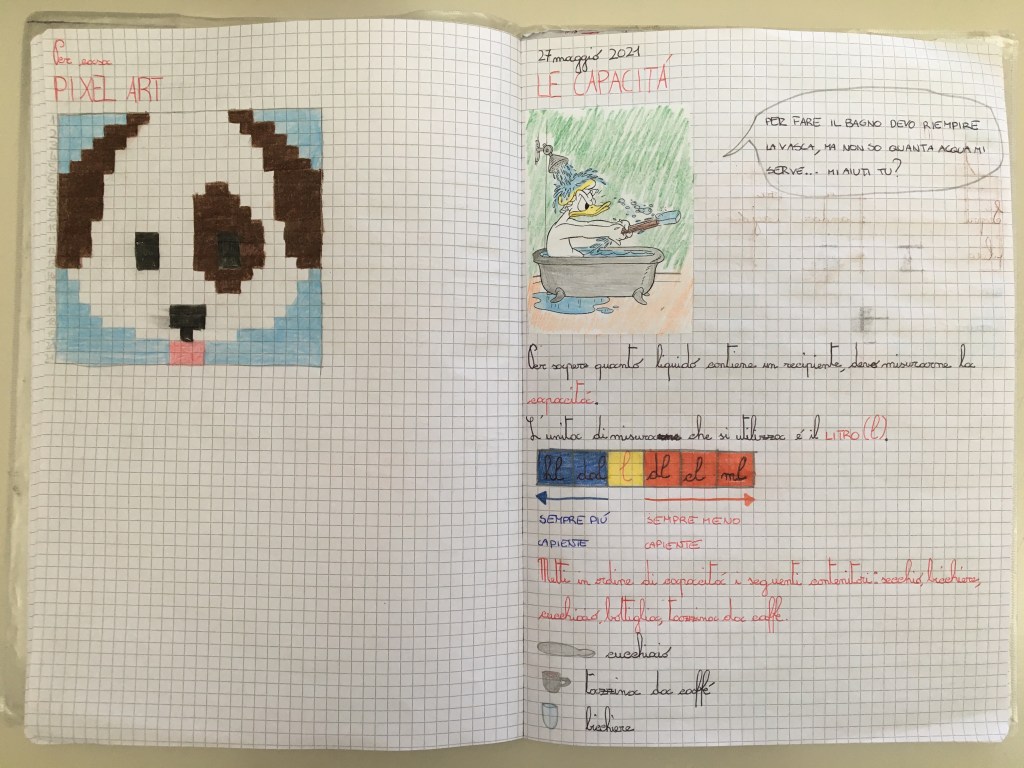 Per casa
PIXEL ART
27 maggio 2021
LE CAPACITÁ
PER FARE IL BAGNO DEVO RIEMPIRE
LA VASCA, MA NON SO QUANTA ACQUA MI
SERVE... MI AIUTI TU?
Per sapere quanto liquido contiene un recipiente, devo misurarne la
capacitá.
L'unitá di misura che si utilizza é il LITRO (l).
hl dal l dl cl ml
SEMPRE PIÚ SEMPRE MENO
CAPIENTE CAPIENTE
Metti in ordine di capacitá i seguenti contenitori: secchio, bicchiere,
cucchiaio, bottiglia, tazzina da caffé.
cucchiaio
tazzina da caffé
bicchiere